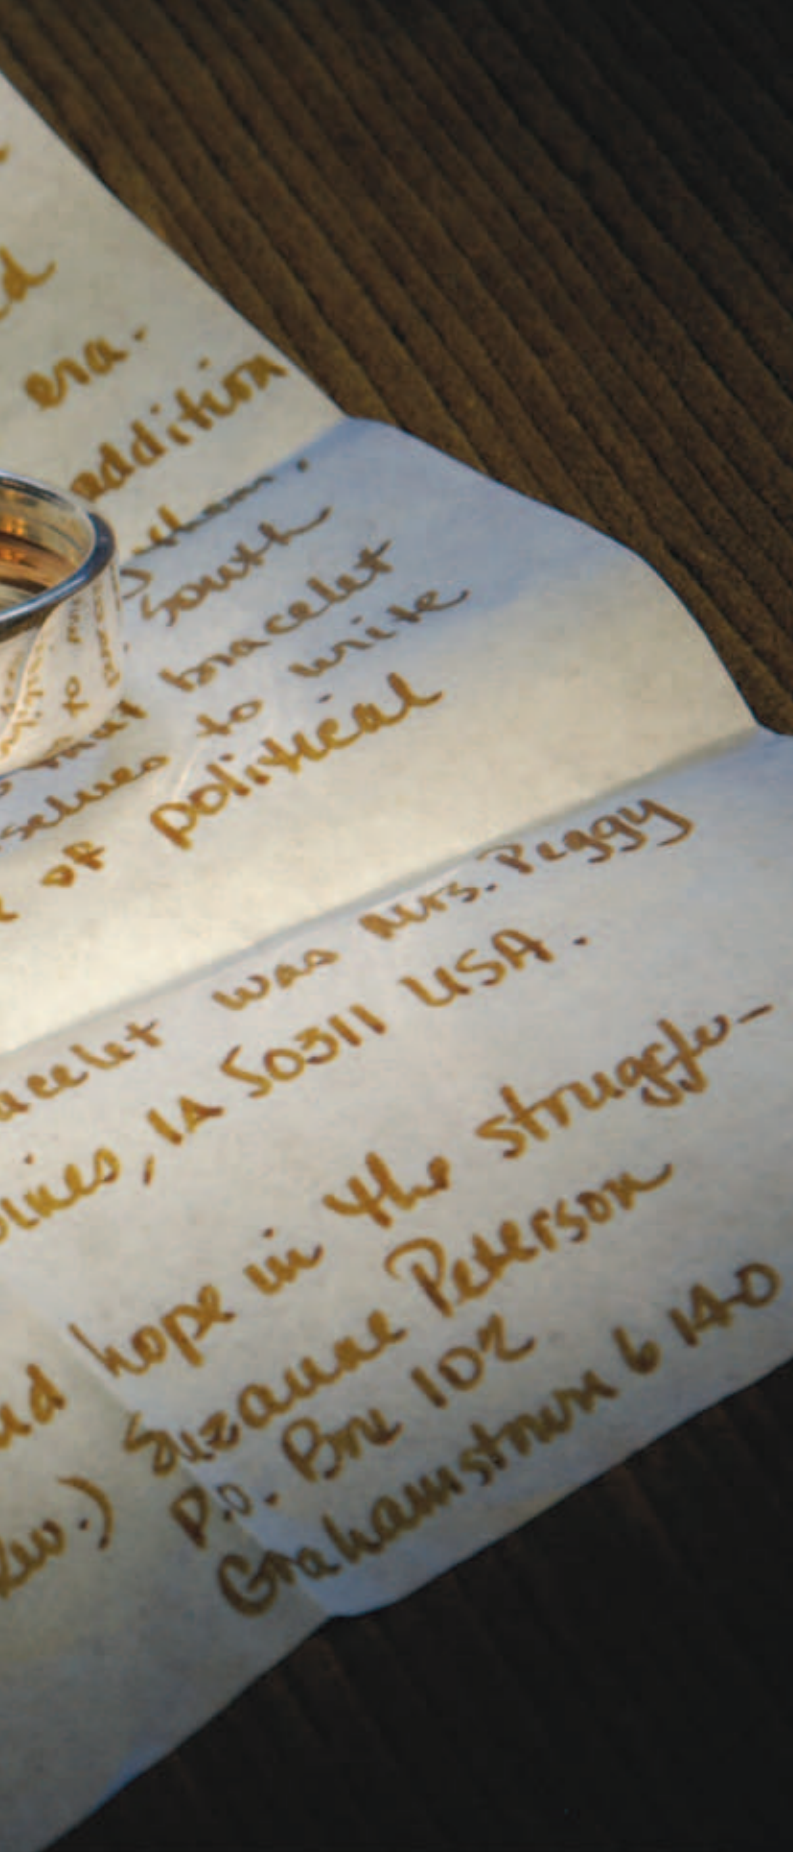 era.
addition
them,
South
that bracelet
selves to write
of political
acelet was Mrs. Peggy
oines, IA 50311 USA.
hope in the struggle-
Suzanne Peterson
P.O. Box 102
Grahamstown 6140